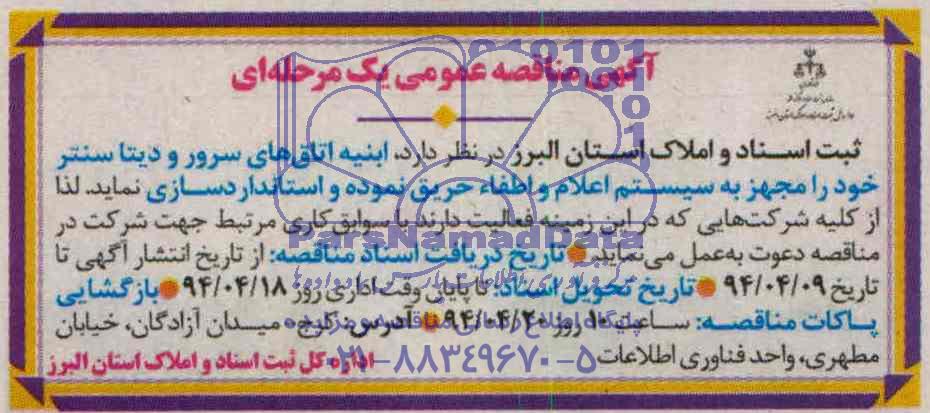 آگهی مناقصه عمومی یک مرحله‌ای
ثبت اسناد و املاک استان البرز در نظر دارد، ابنیه اتاق‌های سرور و دیتا سنتر
خود را مجهز به سیستم اعلام و اطفاء حریق نموده و استانداردسازی نماید. لذا
از کلیه شرکت‌هایی که در این زمینه فعالیت دارند با سوابق کاری مرتبط جهت شرکت در
مناقصه دعوت به‌عمل می‌نماید. تاریخ دریافت اسناد مناقصه: از تاریخ انتشار آگهی تا
تاریخ ۹۴/۰۴/۰۹ تاریخ تحویل اسناد: تا پایان وقت اداری روز ۹۴/۰۴/۱۸ بازگشایی
پاکات مناقصه: ساعت ۱۰ روز ۹۴/۰۴/۲۰ آدرس: کرج، میدان آزادگان، خیابان
مطهری، واحد فناوری اطلاعات
اداره کل ثبت اسناد و املاک استان البرز
ParsNamadData
۰۲۱-۸۸۳۴۹۶۷۰-۵